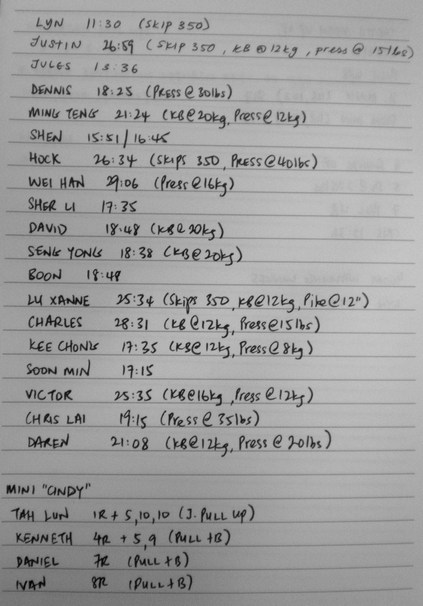 LYN 11:30 (SKIP 350)
JUSTIN 26:59 (SKIP 350, KB @ 12kg, press @ 15lbs)
JULES 15:36
DENNIS 18:25 (PRESS @ 30lbs)
MING TENG 21:24 (KB@20kg, Press@12kg)
SHEN 15:51/16:45
HOCK 26:34 (SKIPS 350, PRESS@40lbs)
WEI HAN 29:06 (Press@16kg)
SHER LI 17:35
DAVID 18:48 (KB@20kg)
SENG YONG 18:38 (KB@20kg)
BOON 18:48
LU XANNE 25:34 (Skips 350, KB@12kg, Pike@12")
CHARLES 28:31 (KB@12kg, Press@15lbs)
KEE CHONG 17:35 (KB@12kg, Press@8kg)
SOON MIN 17:15
VICTOR 25:35 (KB@16kg, Press@12kg)
CHRIS LAI 19:15 (Press@35lbs)
DAREN 21:08 (KB@12kg, Press@20lbs)
MINI "CINDY"
TAH LUN 1R + 5,10,10 (J. PULL UP)
KENNETH 4R + 5,9 (PULL+B)
DANIEL 7R (PULL+B)
IVAN 8R (PULL+B)